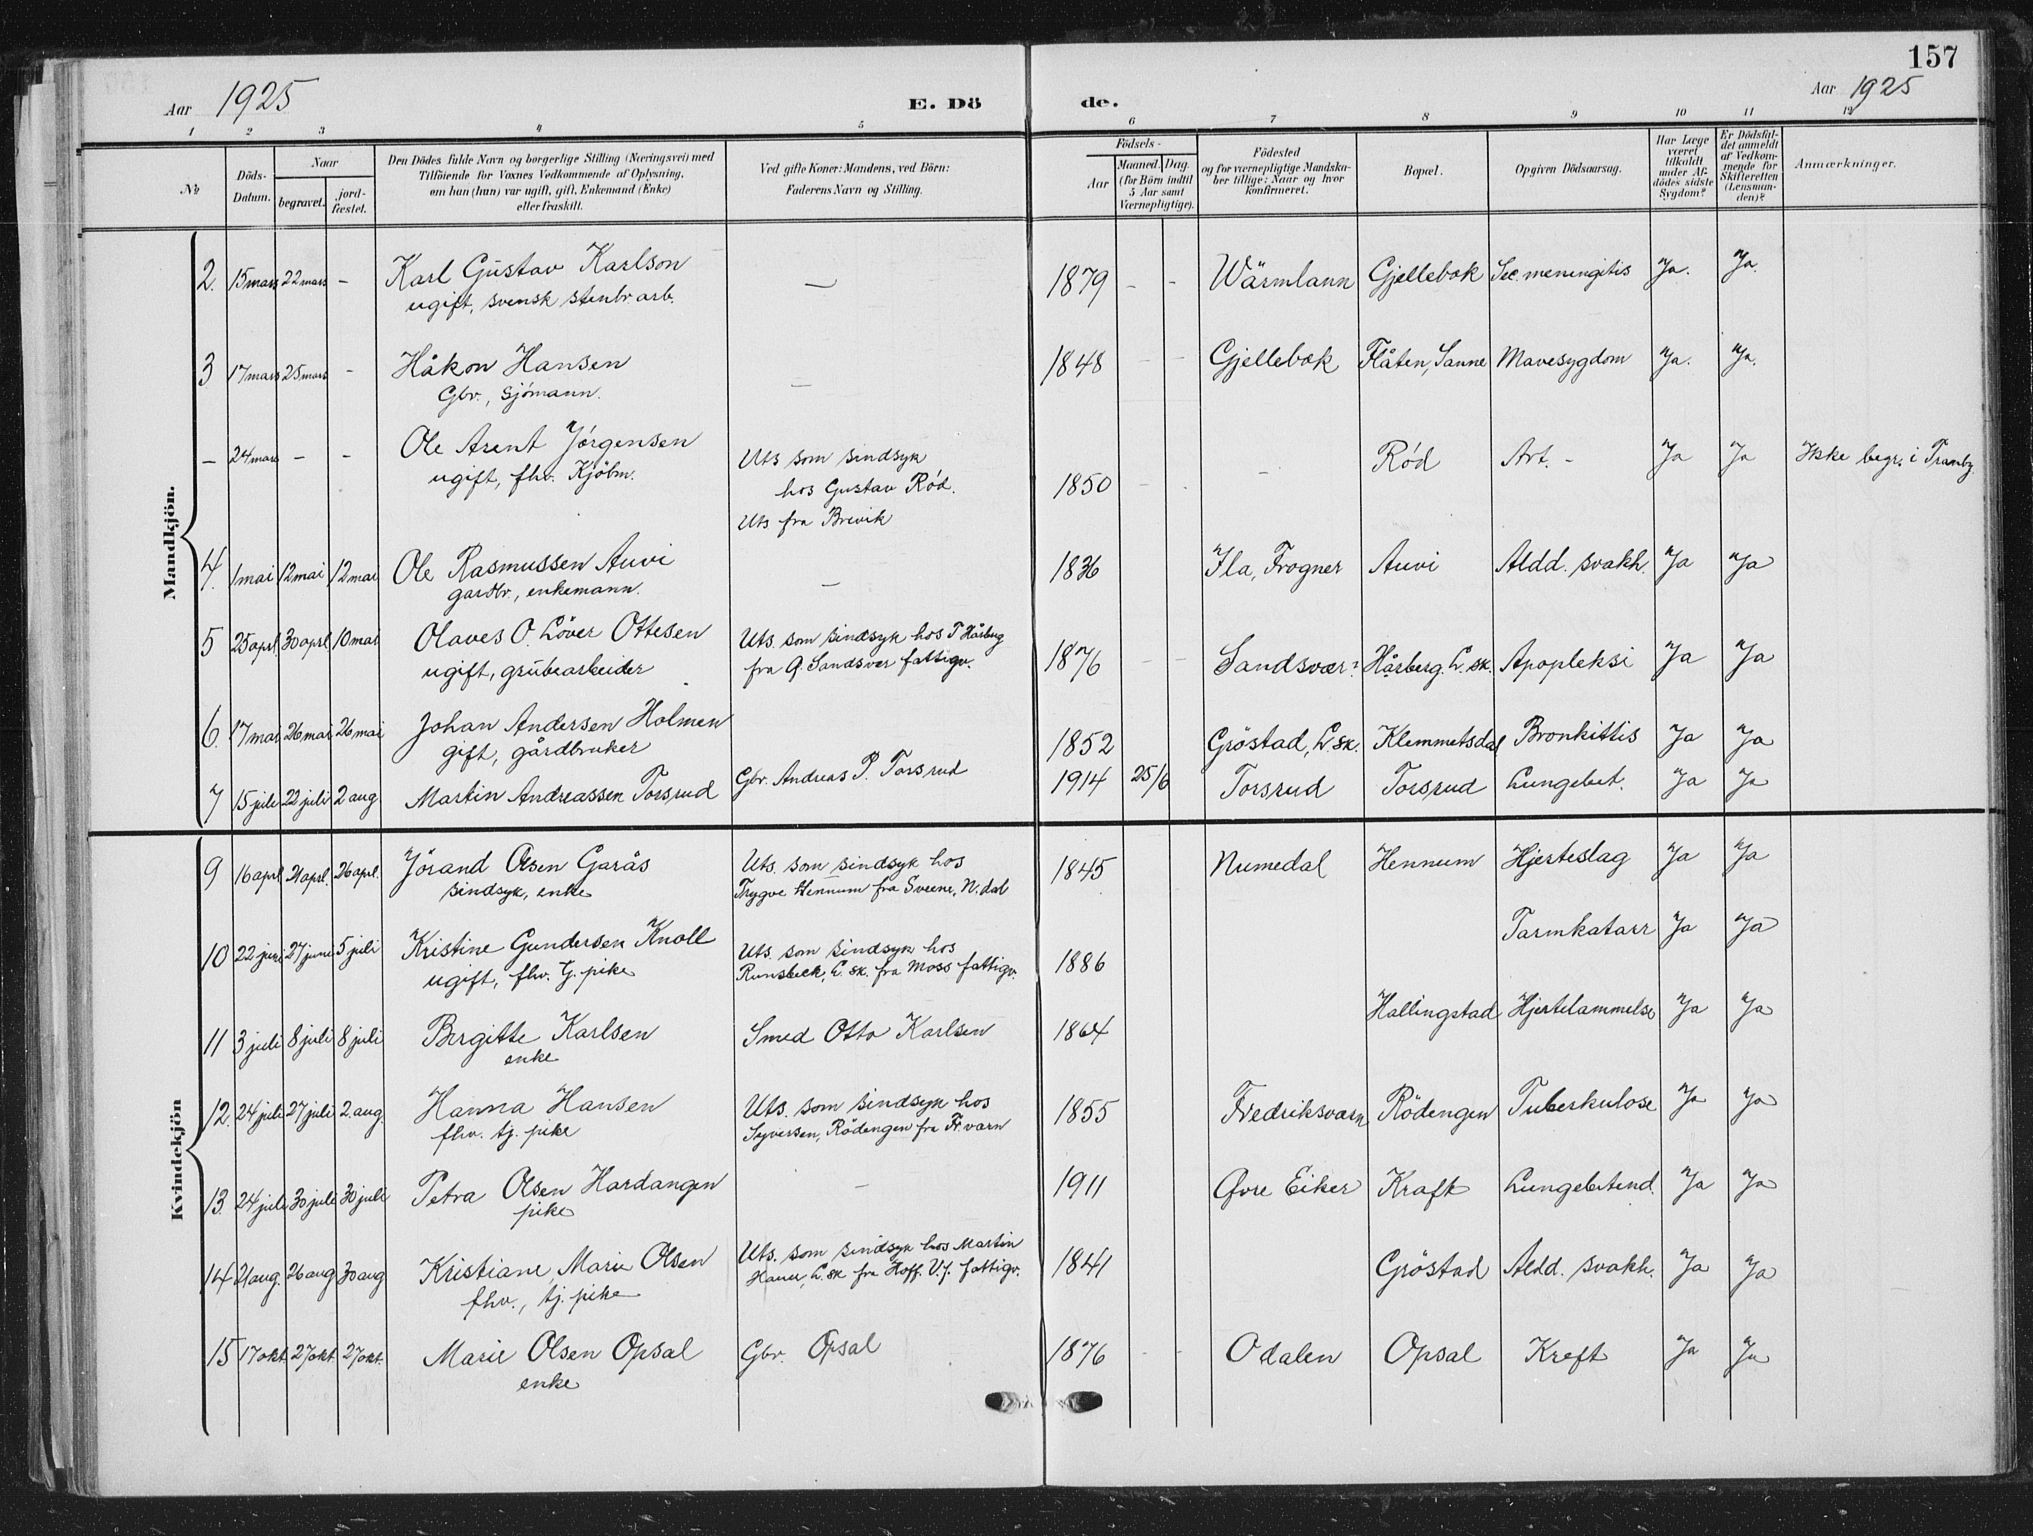 157
Aar 1925 E. Dö de. Aar 1925
1 2 3 4 5 6 7 8 9 10 11 12
№
Döds-Datum.
Naar
begravet.
jord-fæstet.
Den Dödes fulde Navn og borgerlige Stilling (Næringsvei) med
Tilföiende for Voxnes Vedkommende af Oplysning,
om han (hun) var ugift, gift, Enkemand (Enke)
eller fraskilt.
Ved gifte Koner: Mandens, ved Börn:
Faderens Navn og Stilling.
Födsels-
Aar
Maaned. Dag.
(for Börn indtil
5 Aar samt
Værnepligtige).
Födested
og for værnepligtige Mandska-
ber tillige: Naar og hvor
konfirmeret.
Bopæl.
Opgiven Dödsaarsag.
Har Læge
været
tilkaldt
under Af-
dödes sidste
Sygdom?
Er Dödsfal-
det anmeldt
af Vedkom-
mende for
Skifteretten
(Lensman-
den)?
Anmærkninger.
Mandkjön.
2. 15 mars 22 mars - Karl Gustav Karlson - 1879 - - Wärmlann Gjellebæk Sec. meningitis Ja. Ja.
ugift, svensk stenbr arb.
3 17 mars 25 mars - Håkon Hansen - 1848 - - Gjellebæk Flåten, Sanne Mavesygdom Ja. Ja.
Gbr., Sjómann.
- 24 mars - - Ole Arent Jörgensen Uts som sindsyk 1850 - - - Ród Art. - Ja Ja Ikke begr. i Tranby
ugift, fhv. Kjöbm. hos Gustav Ród.
Uts fra Brevik
4. 1 mai 12 mai 12 mai Ole Rasmussen Auvi - 1836 Ila, Frogner Auvi Aldd. svakh. Ja Ja
gardbr., enkemann.
5 25 aprl. 30 aprl. 10 mai Olaves O. Löver Ottesen Uts. som sindsyk hos T Hårberg 1876 - - Sandsvær: Hårberg. L. sk. Apopleksi Ja Ja
ugift, grubearbeider fra Ö. Sandsver fattigv.
6. 17 mai 26 mai 26 mai Johan Andersen Holmen 1852 Gröstad, L. sk. Klemmetsdal Bronkittis Ja Ja
gift, gårdbruker
7 15 juli 22 juli 2 aug. Martin Andreassen Torsrud Gbr. Andreas P. Torsrud 1914 25/6 Torsrud Torsrud Lungebet. Ja Ja
Kvindekjön
9 16 aprl 21 aprl. 26 aprl. Jörand Olsen Garås Uts. som sindsyk hos 1845 Numedal Hennum Hjerteslag Ja Ja
sindsyk, enke Trygve Hennum fra Sveene, N. dal
10 22 juni 27 juni 5 juli Kristine Gundersen Knoll Uts. som sindsyk hos 1886 Tarmkatarr Ja Ja
ugift, fhv. tj. pike Runsbeck, L. sk. fra Moss fattigv.
11 3 juli 8 juli 8 juli Bergitte Karlsen Smed Otto Karlsen 1864 Hallingstad Hjertelammelse Ja Ja
enke
12. 24 juli 27 juli 2. aug. Hanna Hansen Uts. som sindsyk hos 1855 Fredriksvarn Rödengen Tuberkulose Ja Ja
fhv. tj. pike Syversen, Rödengen fra Fr. varn
13. 24 juli 30 juli 30 juli Petra Olsen Hardangen - 1911 Övre Eiker Kraft Lungebetend. Ja Ja
pike
14 21 aug. 26 aug 30 aug Kristiane Marie Olsen Uts. som sindsyk hos Martin 1841 Gröstad Aldd. svakh. Ja Ja
fhv., tj. pike L. sk fra Hoff. V.f. fattigv.
15 17 okt. 27 okt. 27 okt. Marie Olsen Opsal Gbr. Opsal 1876 - - Odalen Opsal Kreft Ja Ja
enke